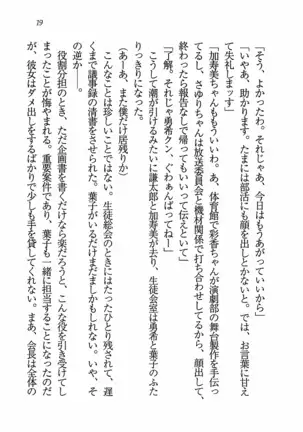 19
「そう、よかったわ。それじゃあ、今日はもうあがっていいから」
「いやあ、助かります。たまには部活にも顔を出しとかないと。では、お言葉に甘え
て失礼しまッす」
「加寿美ちゃんももういいわ。あ、体育館で彩香ちゃんが演劇部の舞台製作を手伝っ
てるし、さゆりちゃんは放送委員会と機材関係で打ち合わせしてるから、顔出して、
終わったら報告なしで帰ってもいいって伝えといて」
「了解。それじゃ勇希クン、ぐゎぁんばってねー」
　そうして潮が引くみたいに謙太郎と加寿美が去り、生徒会室は勇希と葉子のふた
りきりになった。
（あーあ、また僕だけ居残りか）
　こんなことは珍しいことではない。生徒総会のときにはたったひとり残されて、遅
くまで議事録の清書をさせられた。葉子がいるだけまだましかもしれない。いや、そ
の逆か――。
　役割分担のとき、ただ企画書を書くだけなら楽だろうと、こんな役を引き受けてし
まったことが悔やまれる。重要案件であり、葉子も一緒に担当することになったのだ
が、彼女はダメ出しをするばかりで少しも手を貸してくれない。まあ、会長は全体の